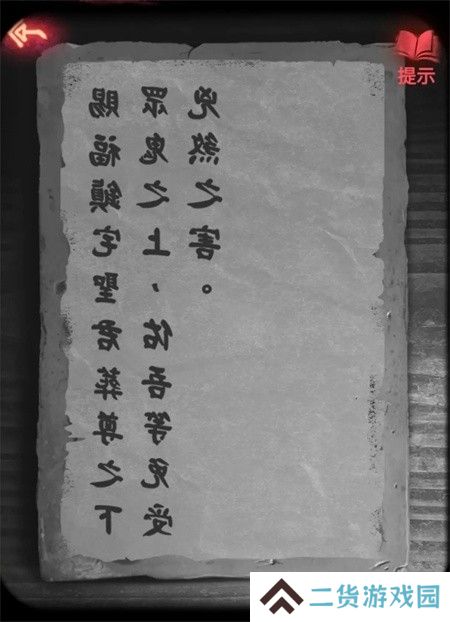 提示
賜福鎮宅聖君葬尊之下
眾鬼之上，佑吾等免受
兇煞之害。
二货游戏园